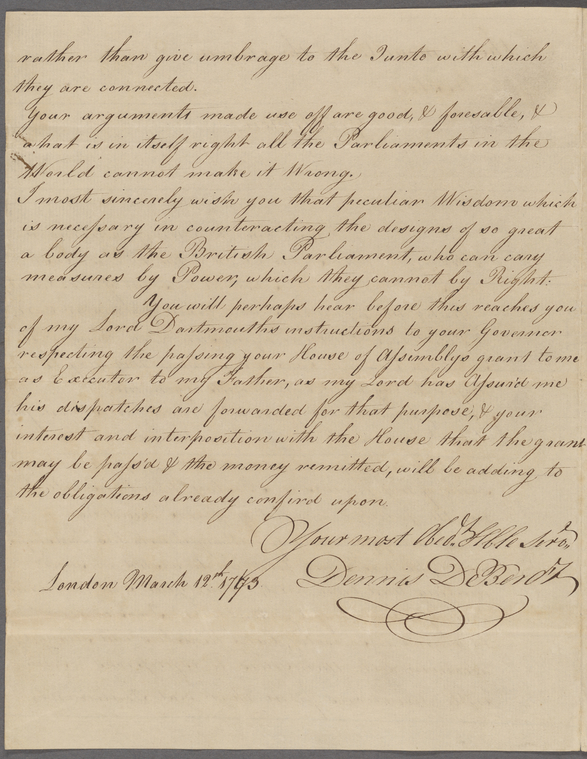 rather than give umbrage to the Junto with which
they are connected.
Your arguments made use off are good, & foresable, &
what is in itself right all the Parliaments in the
World cannot make it Wrong.
I most sincerely wish you that peculiar Wisdom which
is necessary in counteracting the designs of so great
a body as the British Parliament, who can cary
measures by Power, which they cannot by Right.
You will perhaps hear before this reaches you
of my Lord Dartmouth's instructions to your Governor
respecting the passing your House of Assemblys grant to me
as Executor to my Father, as my Lord has Assur'd me
his dispatches are forwarded for that purpose, & your
interest and interposition with the House that the grant
may be pass'd & the money remitted, will be adding to
the obligations already confird upon
Your most Obed.t Hble Serv.t
London March 12.th 1773 Dennis DeBerdt